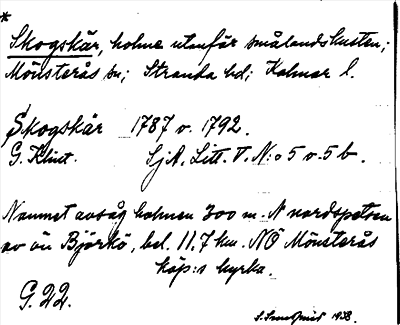 *
Skogskär, holme utanför smålandskusten;
Mönsterås sn; Stranda hd; Kalmar l.
Skogskär 1787 o. 1792.
G. Klint. SjA. Litt. V. N:o 5 o. 5 b.
Namnet avsåg holmen 300 m. N nordspetsen
av ön Björkö, bel. 11,7 km. NÖ Mönsterås
köp:s kyrka.
G. 22.
1938.